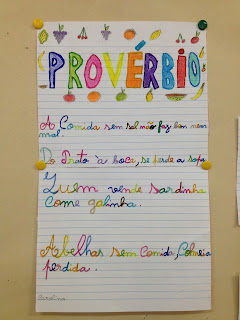 PROVÉRBIO
A Comida sem sal não faz bem nem
mal.
Do Prato à boca, se perde a sopa
Quem vende sardinha
come galinha.
Abelhas sem Comida, Colmeia
perdida.
Carolina